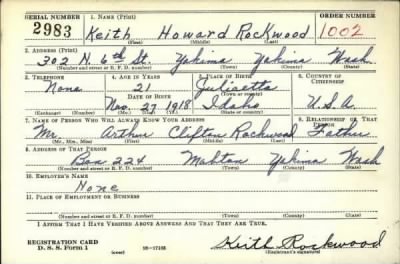 SERIAL NUMBER 1. NAME (Print) ORDER NUMBER
2983 Keith Howard Rockwood 1002
(First) (Middle) (Last)
2. ADDRESS (Print)
302 N. 6th St. Yakima Yakima Wash.
(Number and street or R. F. D. number) (Town) (County) (State)
3. TELEPHONE 4. AGE IN YEARS 5. PLACE OF BIRTH 6. COUNTRY OF CITIZENSHIP
None 21 Juliaetta
DATE OF BIRTH (Town or county)
Nov. 27 1918 Idaho U.S.A.
(Exchange) (Number) (Mo.) (Day) (Yr.) (State or country)
7. NAME OF PERSON WHO WILL ALWAYS KNOW YOUR ADDRESS 8. RELATIONSHIP OF THAT PERSON
Mr. Arthur Clifton Rockwood Father
(Mr., Mrs., Miss) (First) (Middle) (Last)
9. ADDRESS OF THAT PERSON
Box 224 Mabton Yakima Wash
(Number and street or R. F. D. number) (Town) (County) (State)
10. EMPLOYER'S NAME
None
11. PLACE OF EMPLOYMENT OR BUSINESS
(Number and street or R. F. D. number) (Town) (County) (State)
I AFFIRM THAT I HAVE VERIFIED ABOVE ANSWERS AND THAT THEY ARE TRUE.
REGISTRATION CARD
D. S. S. Form 1 (over) 16-17105 Keith Rockwood
(Registrant's signature)